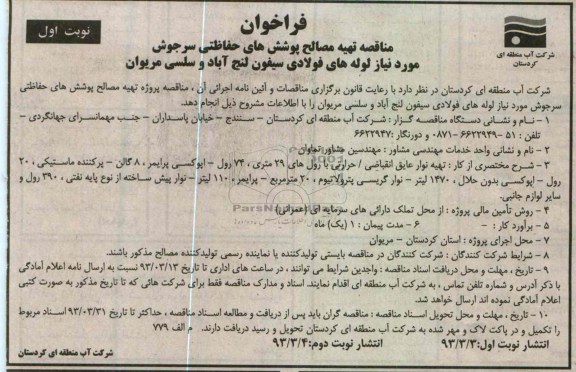 فراخوان
نوبت اول
شرکت آب منطقه ای
کردستان
مناقصه تهیه مصالح پوشش های حفاظتی سرجوش
مورد نیاز لوله های فولادی سیفون لنج آباد و سلسی مریوان
شرکت آب منطقه ای کردستان در نظر دارد با رعایت قانون برگزاری مناقصات و آئین نامه اجرائی آن ، مناقصه پروژه تهیه مصالح پوشش های حفاظتی
سرجوش مورد نیاز لوله های فولادی سیفون لنج آباد و سلسی مریوان را با اطلاعات مشروح ذیل انجام دهد.
۱ - نام و نشانی دستگاه مناقصه گزار : شرکت آب منطقه ای کردستان - سنندج - خیابان پاسداران - جنب مهمانسرای جهانگردی -
تلفن : ۵۱ - ۶۶۲۲۹۴۹-۰۸۷۱ و دورنگار : ۶۶۲۲۹۴۷
۲ - نام و نشانی واحد خدمات مهندسی مشاور : مهندسین مشاور تماوان
۳ - شرح مختصری از کار : تهیه نوار عایق انقباضی / حرارتی با رول های ۲۹ متری ، ۷۴ رول - اپوکسی پرایمر ، ۸ گالن - پرکننده ماستیکی ، ۲۰
رول - اپوکسی بدون حلال ، ۱۴۷۰ لیتر - نوار گریسی پترولاتیوم ، ۲۰ مترمربع - پرایمر ، ۱۱۰ لیتر - نوار پیش ساخته از نوع پایه نفتی ، ۳۹۰ رول و
سایر لوازم جانبی.
۴ - روش تأمین مالی پروژه : از محل تملک دارائی های سرمایه ای (عمرانی)
۵ - برآورد کار : - ۶ - مدت پیمان : ۱ (یک) ماه
۷ - محل اجرای پروژه : استان کردستان - مریوان
۸ - شرایط شرکت کنندگان : شرکت کنندگان در مناقصه بایستی تولیدکننده یا نماینده رسمی تولیدکننده مصالح مذکور باشند.
۹ - تاریخ ، مهلت و محل دریافت اسناد مناقصه : واجدین شرایط می توانند ، در ساعت های اداری تا تاریخ ۹۳/۰۳/۱۳ نسبت به ارسال نامه اعلام آمادگی
با ذکر آدرس و شماره تلفن تماس ، به شرکت آب منطقه ای اقدام نمایند. اسناد و مدارک مناقصه فقط برای شرکت هائی که تا تاریخ مذکور به صورت کتبی
اعلام آمادگی نموده اند ارسال خواهد شد.
۱۰ - تاریخ ، مهلت و محل تحویل اسناد مناقصه : مناقصه گران باید پس از دریافت و مطالعه اسناد مناقصه ، حداکثر تا تاریخ ۹۳/۰۳/۳۱ اسناد مربوط
را تکمیل و در پاکت لاک و مهر شده به شرکت آب منطقه ای کردستان تحویل و رسید دریافت دارند. م الف ۷۷۹
انتشار نوبت اول: ۹۳/۳/۳ انتشار نوبت دوم: ۹۳/۳/۴
شرکت آب منطقه ای کردستان